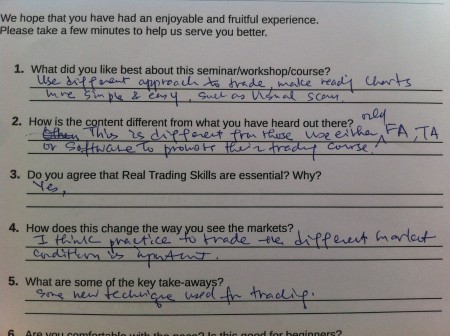 We hope that you have had an enjoyable and fruitful experience.
Please take a few minutes to help us serve you better.
1. What did you like best about this seminar/workshop/course?
Use different approach to trade, make ready charts
more simple & easy, such as Visual Scan.
2. How is the content different from what you have heard out there?
only
This is different from those use either FA, TA
or Software to promote their trading course.
3. Do you agree that Real Trading Skills are essential? Why?
Yes,
4. How does this change the way you see the markets?
I think practice to trade the different market
condition is
5. What are some of the key take-aways?
Some new technique used for trading.
6. Are you comfortable with the pace? Is this good for beginners?